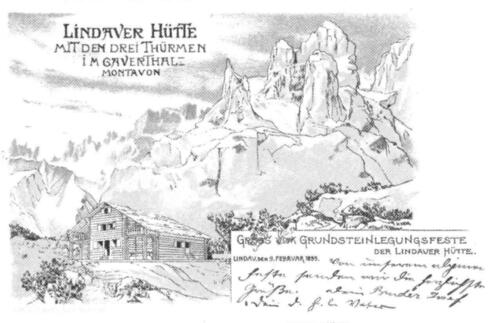 LINDAVER HÜTTE
MIT DEN DREI THÜRMEN
IM GAVERTHAL
MONTAVON
GRUSS VOM GRUNDSTEINLEGUNGSFESTE
DER LINDAVER HÜTTE.
LINDAV, DEN 9. FEBRUAR 1899.
Von unserem
Feste senden wir die herzlichsten
Grüße. Bruder Josef